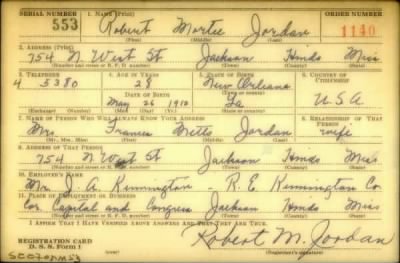 SERIAL NUMBER 1. NAME (Print) ORDER NUMBER
553 Robert Mortee Jordan 1140
(First) (Middle) (Last)
2. ADDRESS (Print)
754 N West St Jackson Hinds Miss
(Number and street or R. F. D. number) (Town) (County) (State)
3. TELEPHONE 4. AGE IN YEARS 5. PLACE OF BIRTH 6. COUNTRY OF CITIZENSHIP
4 5380 28 New Orleans
DATE OF BIRTH (Town or county)
May 26 1912 La U.S.A
(Exchange) (Number) (Mo.) (Day) (Yr.) (State or country)
7. NAME OF PERSON WHO WILL ALWAYS KNOW YOUR ADDRESS 8. RELATIONSHIP OF THAT PERSON
Mrs. Frances Jordan wife
(Mr., Mrs., Miss) (First) (Middle) (Last)
9. ADDRESS OF THAT PERSON
754 N West St Jackson Hinds Miss
(Number and street or R. F. D. number) (Town) (County) (State)
10. EMPLOYER'S NAME
Mr. J. A. Rimmington - R. E. Co
11. PLACE OF EMPLOYMENT OR BUSINESS
Cor Capital and Congress Jackson Hinds Miss
(Number and street or R. F. D. number) (Town) (County) (State)
I AFFIRM THAT I HAVE VERIFIED ABOVE ANSWERS AND THAT THEY ARE TRUE.
REGISTRATION CARD
D. S. S. Form 1
Robert M. Jordan
(Registrant's signature)